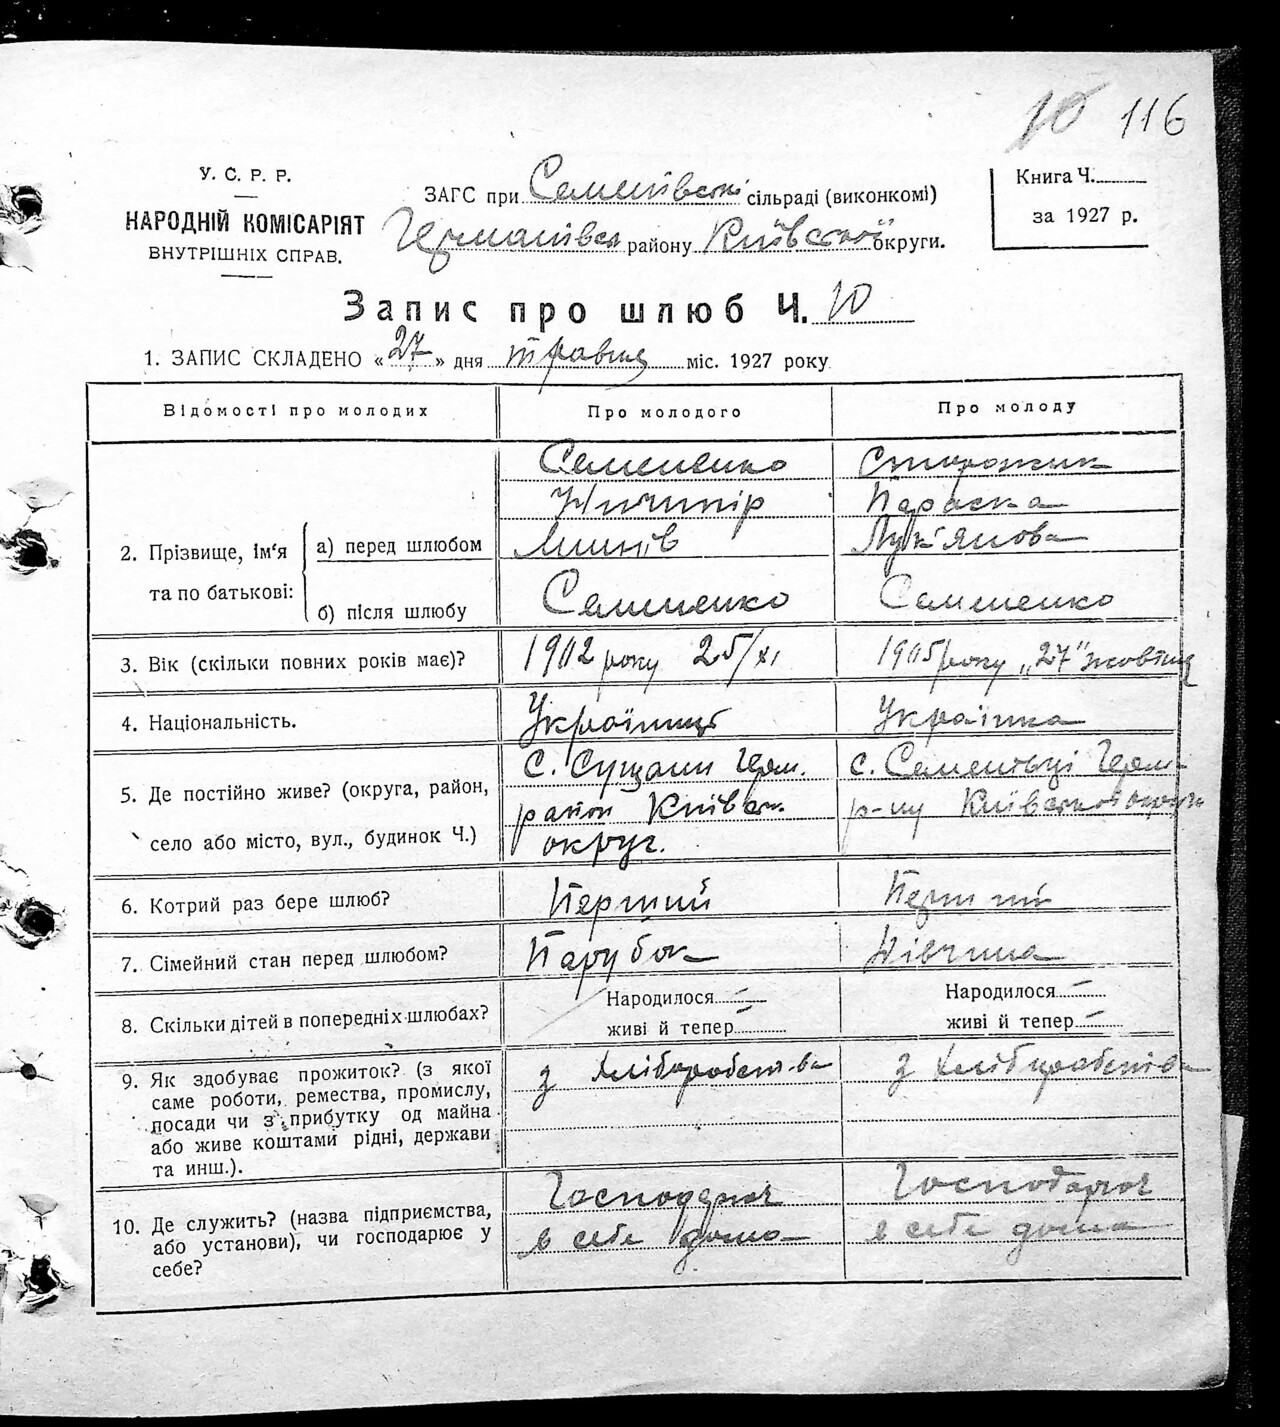 10 116
У. С. Р. Р.
НАРОДНІЙ КОМІСАРІЯТ
ВНУТРІШНІХ СПРАВ.
ЗАГС при Семенівські сільраді (виконкомі)
Германівськ району Київської округи.
Книга Ч.
за 1927 р.
Запис про шлюб Ч. 10
1. ЗАПИС СКЛАДЕНО «27» дня травня міс. 1927 року
Відомості про молодих Про молодого Про молоду
2. Прізвище, ім'я та по батькові:
а) перед шлюбом
Семененко Сторожик
Ничипір Параска
Минів Лук'янова
б) після шлюбу Семененко Семененко
3. Вік (скільки повних років має)? 1902 року 25/XI 1905 року „27" жовтня
4. Національність. Українець Українка
5. Де постійно живе? (округа, район,
село або місто, вул., будинок Ч.)
с. Сущани Герм. с. Семенівці Герм.
район Київськ. р-ну Київської округи
округ.
6. Котрий раз бере шлюб? Перший Перший
7. Сімейний стан перед шлюбом? Парубок Дівчина
8. Скільки дітей в попередніх шлюбах? Народилося — Народилося —
живі й тепер — живі й тепер —
9. Як здобуває прожиток? (з якої
саме роботи, ремества, промислу,
посади чи з прибутку од майна
або живе коштами рідні, держави
та инш.).
з хліборобства з хліборобства
10. Де служить? (назва підприємства,
або установи), чи господарює у
себе?
Господарює Господарює
в себе дома в себе дома